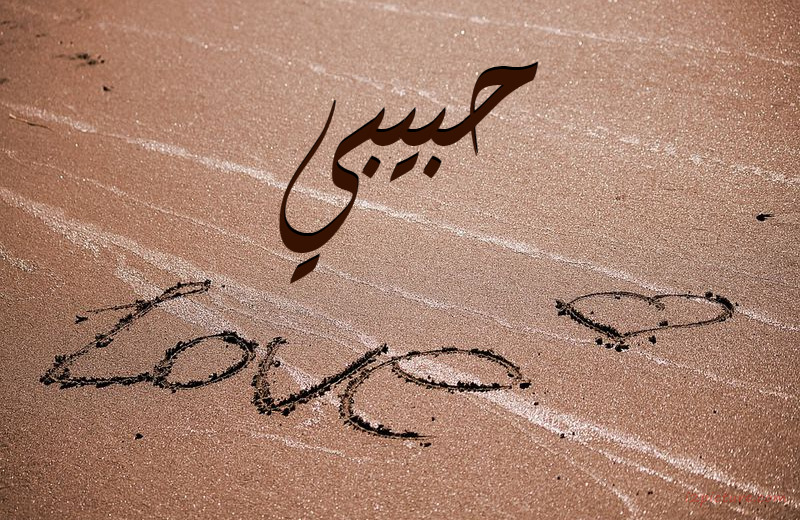 حبيبي
Love